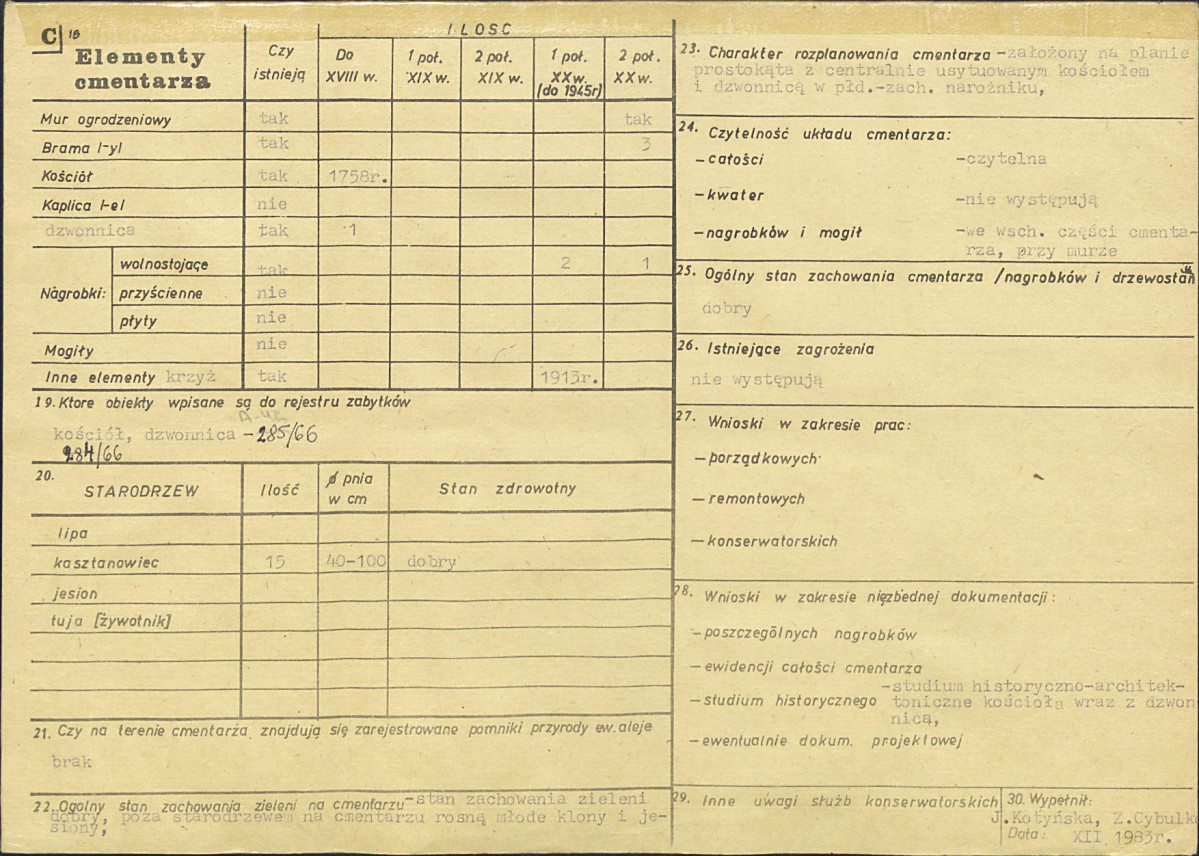 C 18
Elementy cmentarza | Czy istnieją | ILOSC
Do XVIII w. | 1 poł. XIX w. | 2 poł. XIX w. | 1 poł. XX w. (do 1945r) | 2 poł. XX w.
Mur ogrodzeniowy | tak | tak
Brama 1-yl | tak | 3
Kościół | tak | 1758r.
Kaplica 1-el | nie
dzwonnica | tak | 1
Nagrobki: wolnostojące | tak | 2 | 1
przyścienne | nie
płyty | nie
Mogiły | nie
Inne elementy krzyż | tak | 1913r.
19. Ktore obiekty wpisane są do rejestru zabytków
kościół, dzwonnica - 285/66
284/66
20. STARODRZEW | Ilość | ø pnia w cm | Stan zdrowotny
lipa
kasztanowiec | 15 | 40-100 | dobry
jesion
tuja [żywotnik]
21. Czy na terenie cmentarza znajdują się zarejestrowane pomniki przyrody ew. aleje
brak
22. Ogolny stan zachowania zieleni na cmentarzu -stan zachowania zieleni
dobry, poza starodrzewem na cmentarzu rosną młode klony i je-
siony,
23. Charakter rozplanowania cmentarza -założony na planie
prostokąta z centralnie usytuowanym kościołem
i dzwonnicą w płd.-zach. narożniku,
24. Czytelność układu cmentarza:
-całości -czytelna
-kwater -nie występują
-nagrobków i mogił -we wsch. części cmenta-
rza, przy murze
25. Ogólny stan zachowania cmentarza /nagrobków i drzewostan
dobry
26. Istniejące zagrożenia
nie występują
27. Wnioski w zakresie prac:
-porządkowych
-remontowych
-konserwatorskich
28. Wnioski w zakresie niezbednej dokumentacji:
-poszczególnych nagrobków
-ewidencji całości cmentarza
-studium historycznego -studium historyczno-architek-
toniczne kościoła wraz z dzwon
nicą,
-ewentualnie dokum. projektowej
29. Inne uwagi służb konserwatorskich
30. Wypełnił:
J.Kotyńska, Z.Cybulk
Data: XII 1983r.